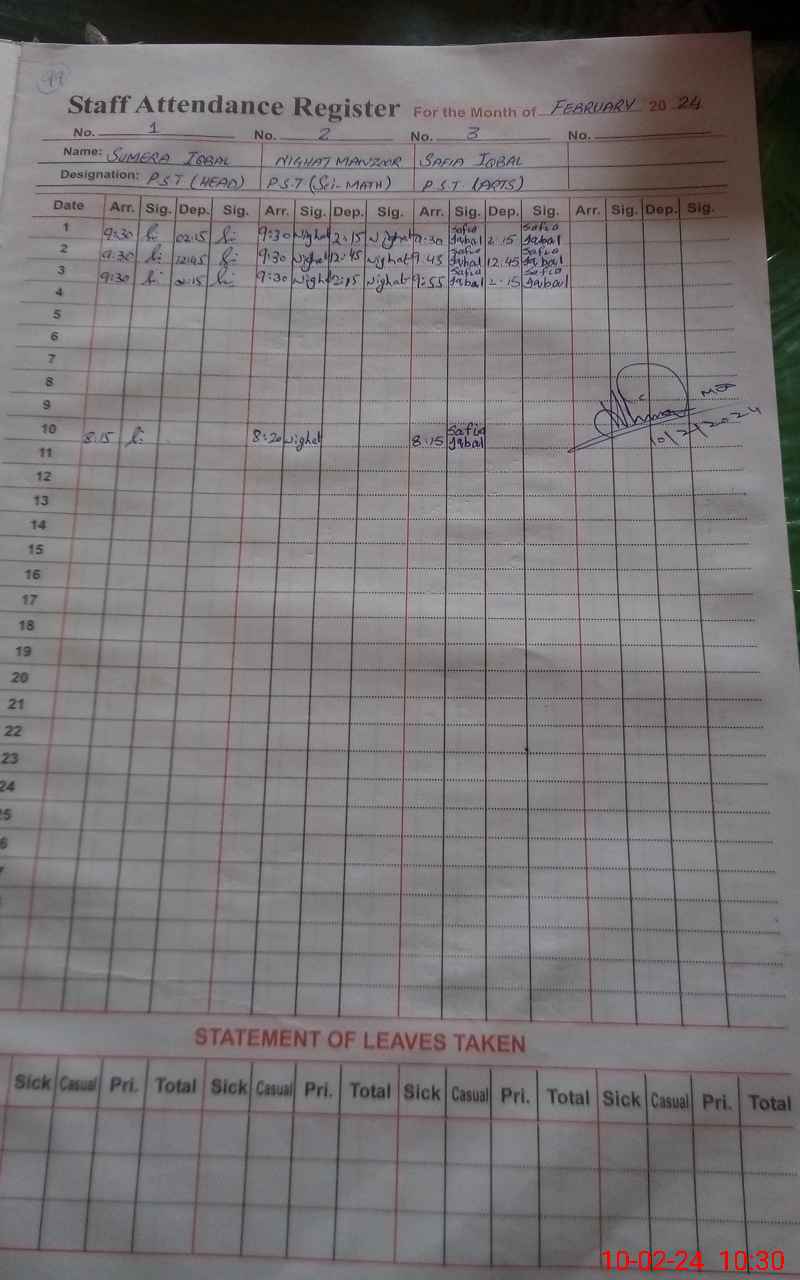 99
Staff Attendance Register For the Month of FEBRUARY 2024
No. 1 No. 2 No. 3 No.
Name: SUMERA IQBAL NIGHAT MANZOOR SAFIA IQBAL
Designation: P.S.T (HEAD) P.S.T (Sci-MATH) P.S.T (ARTS)
Date Arr. Sig. Dep. Sig. Arr. Sig. Dep. Sig. Arr. Sig. Dep. Sig. Arr. Sig. Dep. Sig.
1 9:30 02:15 9:30 Nighat 2:15 Nighat 9:30 Safia Iqbal 2:15 Safia Iqbal
2 9:30 12:45 9:30 Nighat 12:45 Nighat 9.45 Safia Iqbal 12.45 Safia Iqbal
3 9:30 2:15 9:30 Nighat 2:15 Nighat 9:55 Safia Iqbal 2:15 Safia Iqbal
4
5
6
7
8
9 MEA
10 8:15 8:20 Nighat 8:15 Safia Iqbal 10/2/2024
11
12
13
14
15
16
17
18
19
20
21
22
23
24
5
6
STATEMENT OF LEAVES TAKEN
Sick Casual Pri. Total Sick Casual Pri. Total Sick Casual Pri. Total Sick Casual Pri. Total
10-02-24 10:30